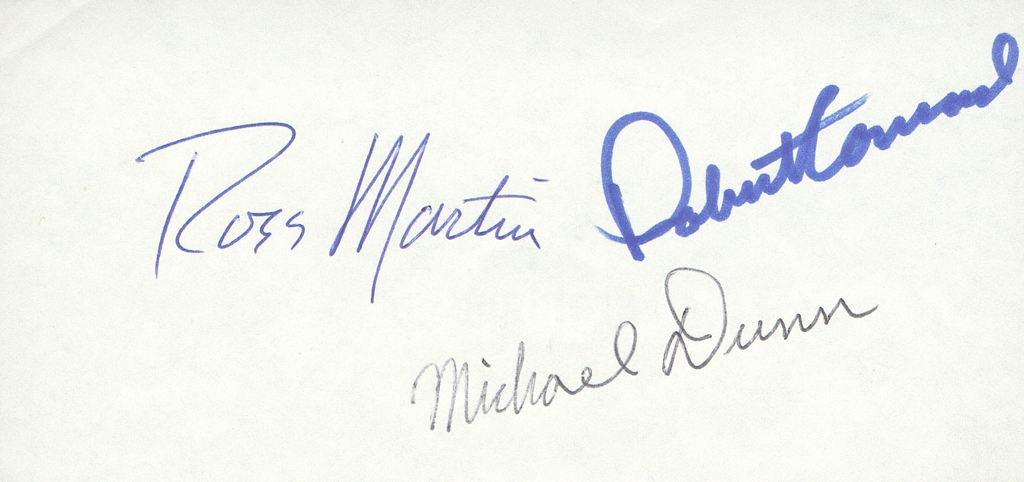 Ross Martin
Robert Conrad
Michael Dunn